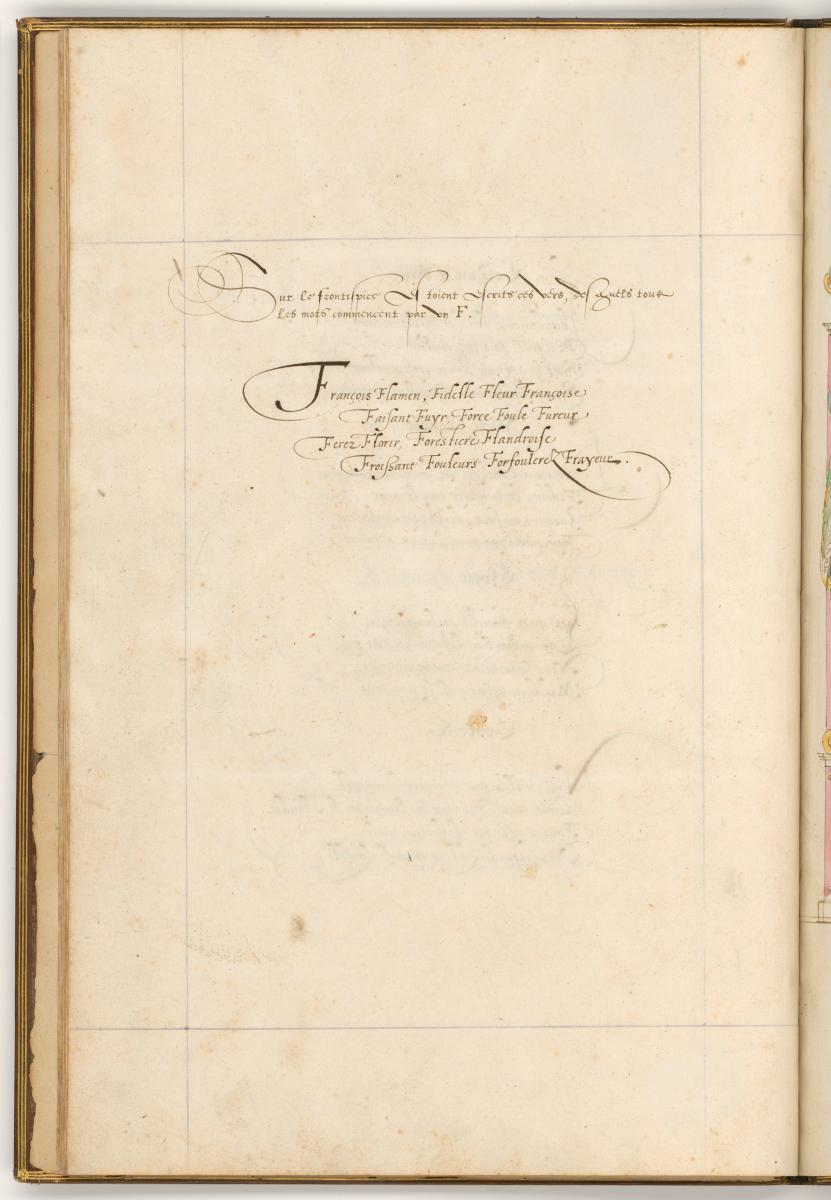 Sur le frontispice estoient escrits ces vers, desquels tous
les mots commencent par vn F.
François Flamen, Fidelle Fleur Françoise
Faisant Fuyr, Force Foule Fureur
Ferez Florir, Forestiere Flandroise
Froissant Fouleurs Forfoulerez Frayeur.